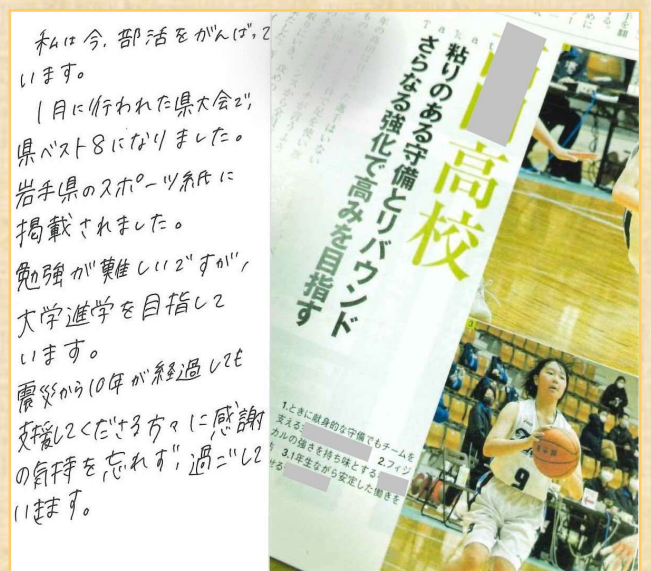 私は今、部活をがんばって
います。
1月に行われた県大会で、
県ベスト8になりました。
岩手県のスポーツ紙に
掲載されました。
勉強が難しいですが、
大学進学を目指して
います。
震災から10年が経過しても
支援してくださる方々に感謝
の気持を忘れず、過ごして
います。
高校
粘りのある守備とリバウンド
さらなる強化で高みを目指す
1.ときに献身的な守備でもチームを
支える
2.フィジ
カルの強さを持ち味とする
3.1年生ながら安定した働きを
せる
9
3